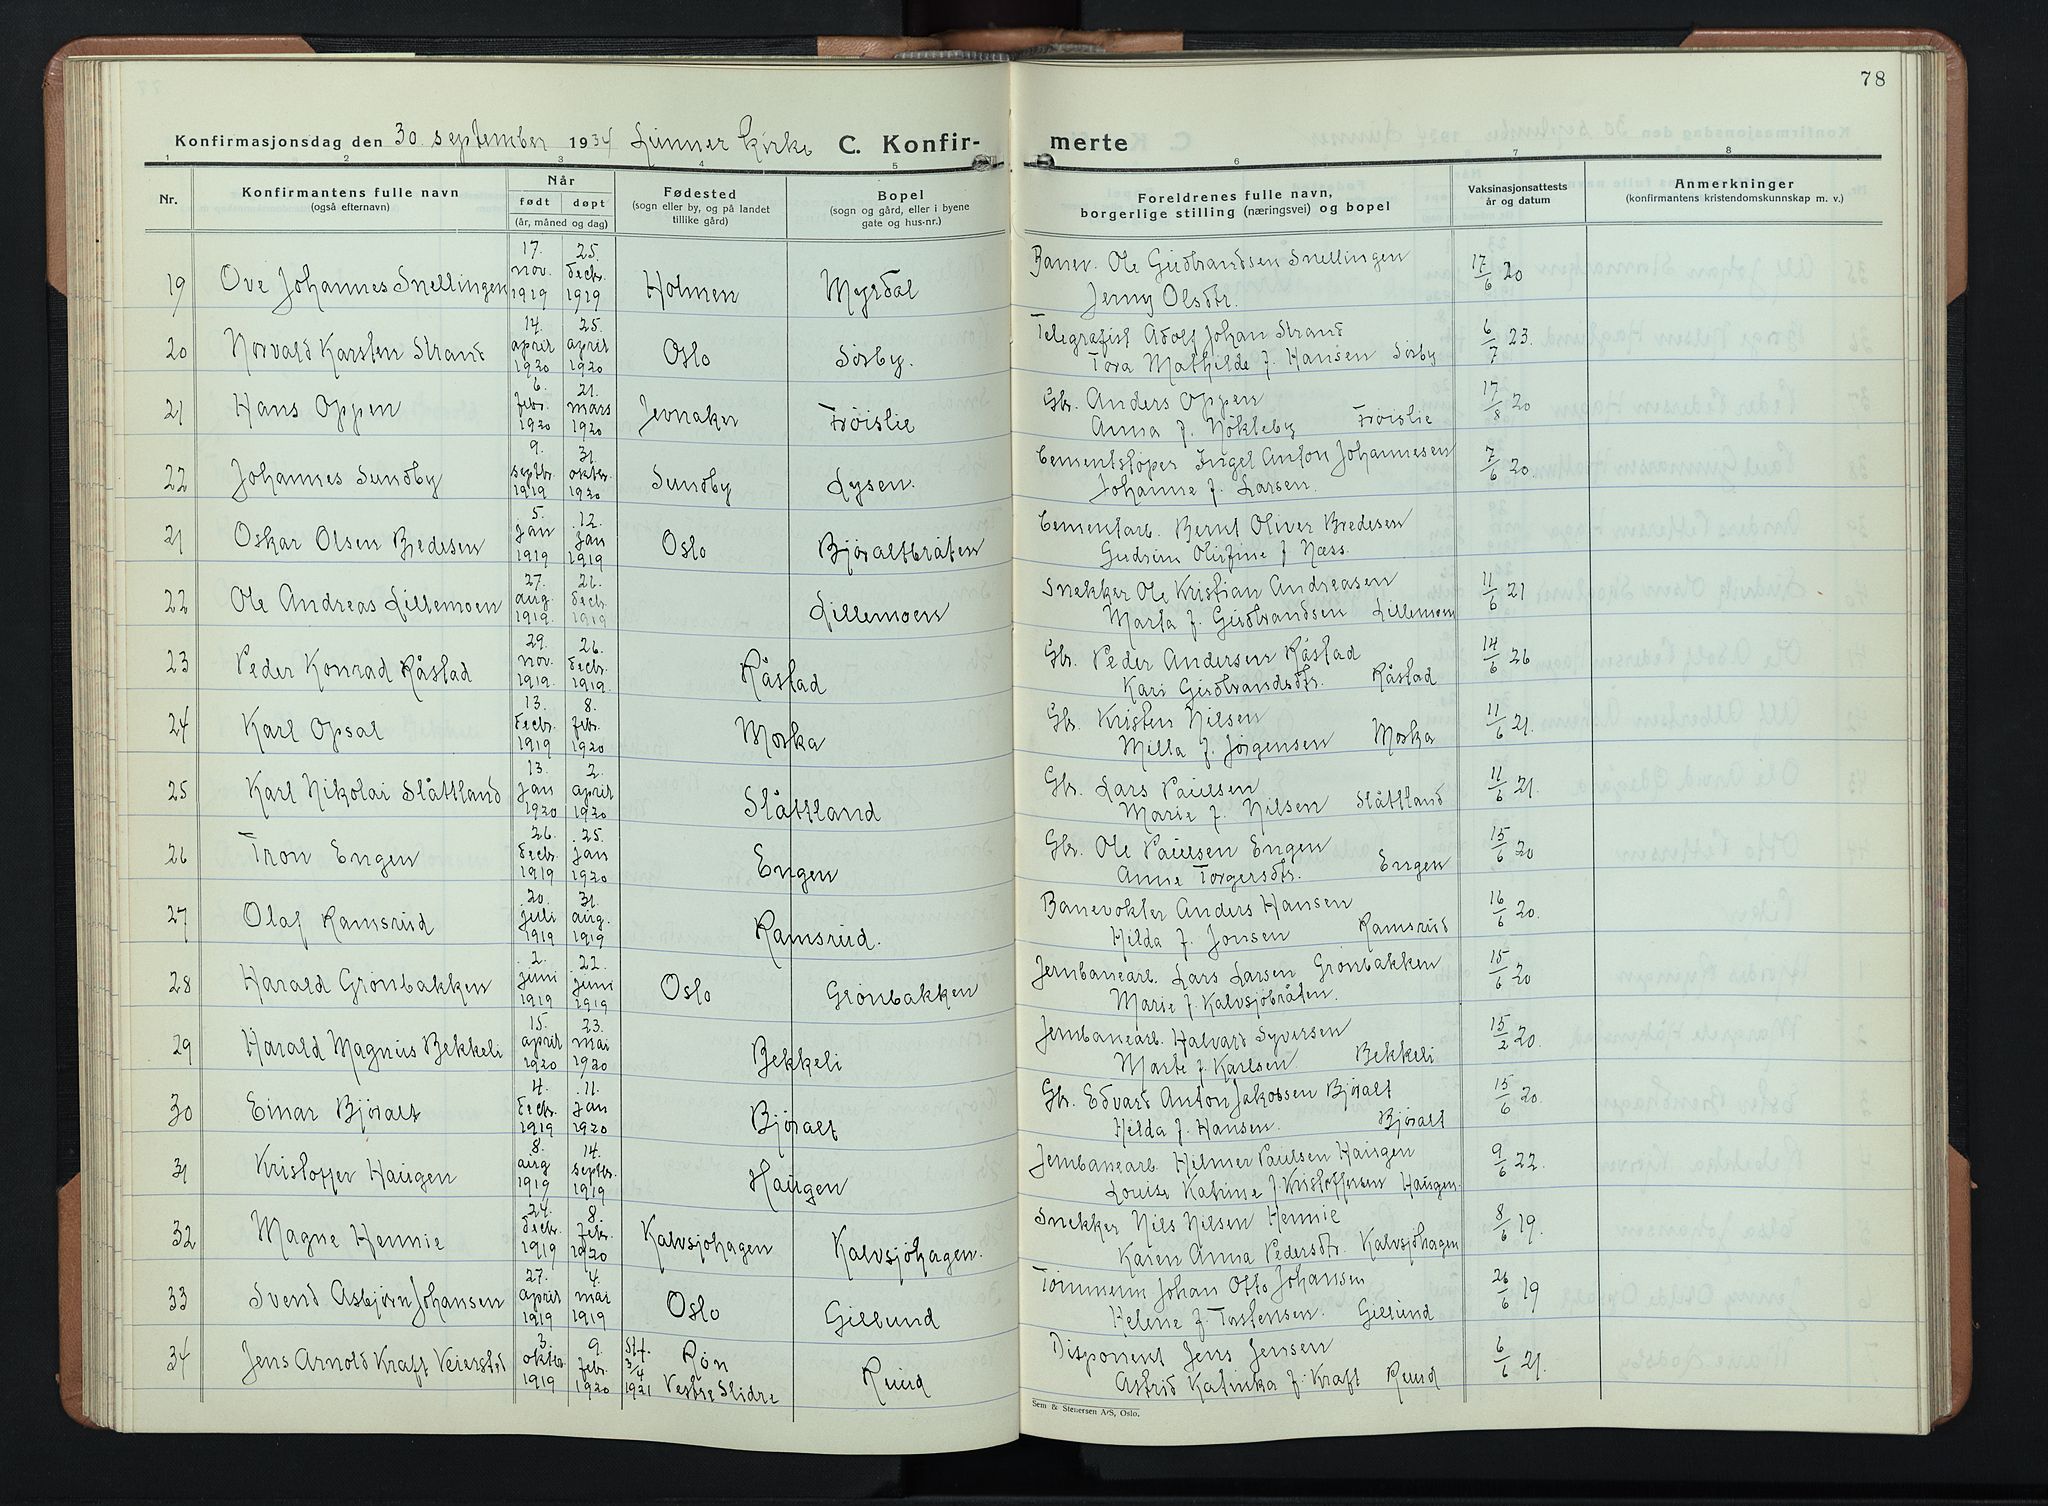 78
Konfirmasjonsdag den 30 september 1934 Lunner kirke C. Konfir- merte
1 2 3 4 5 6 7 8
Nr. Konfirmantens fulle navn (også efternavn) Når født døpt (år, måned og dag) Fødested (sogn eller by, og på landet tillike gård) Bopel (sogn og gård, eller i byene gate og hus-nr.) Foreldrenes fulle navn, borgerlige stilling (næringsvei) og bopel Vaksinasjonsattests år og datum Anmerkninger (konfirmantens kristendomskunnskap m. v.)
19 Ove Johannes Snellingen 17. nov. 1919 25. decbr. 1919 Holmen Myrdal Banev. Ole Gudbrandsen Snellingen 17/6 20
Jenny Olsdtr.
20 Norvald Karsten Strand 14. april 1920 25. april 1920 Oslo Sörby. Telegrafist Adolf Johan Strand 6/7 23.
Tora Mathilde f. Hansen Sörby
21 Hans Oppen 6. febr. 1920 21. mars 1920 Jevnaker Fröislie Gbr. Anders Oppen 17/8 20
Anna f. Nökleby Fröislie
22 Johannes Sundby 9. septbr. 1919 31. oktbr. 1920 Sundby Lysen. Cementstöper Ingel Anton Johannesen 7/6 20.
Johanne f. Larsen.
21 Oskar Olsen Bredesen 5. jan 1919 12. jan 1919 Oslo Björaltbråten Cementarb. Bernt Oliver Bredesen
Gudrun Olufine f. Næss.
22 Ole Andreas Lillemoen 27. aug. 1919. 26. decbr. 1919 Lillemoen Snekker Ole Kristian Andreasen 11/6 21
Marta f. Gudbrandsen Lillemoen
23 Peder Konrad Råstad 29. nov. 1919. 26. decbr. 1919. Råstad Gbr. Peder Andersen Råstad 14/6 26
Kari Gudbrandsdtr. Råstad
24 Karl Opsal 13. decbr. 1919 8. febr. 1920 Moska Gbr. Kristen Nilsen 11/6 21.
Milla f. Jörgensen Moska
25 Karl Nikolai Slåttland 13. jan 1920 2. april 1920 Slåttland Gbr. Lars Paulsen 11/6 21.
Marie f. Nilsen Slåttland
26 Tron Engen 26. decbr. 1919 25. jan 1920 Engen Gbr. Ole Paulsen Engen 15/6 20
Anne Torgersdtr. Engen
27 Olaf Ramsrud 20. juli 1919 31. aug. 1919 Ramsrud. Banevokter Anders Hansen 16/6 20.
Hilda f. Jonsen Ramsrud
28 Harald Grönbakken 2. juni 1919 22. juni 1919 Oslo Grönbakken Jernbanearb. Lars Larsen Grönbakken 15/6 20
Marie f. Kalvsjöbråten.
29 Harald Magnus Bekkeli 15. april 1920 23. mai 1920 Bekkeli Jernbanearb. Halvard Syversen 15/2 20.
Marte f. Karlsen Bekkeli
30 Einar Björalt 4. decbr. 1919 11. jan 1920 Björalt Gbr. Edvard Anton Jakobsen Björalt 15/6 20.
Hilda f. Hansen. Björalt
31 Kristoffer Haugen 8. aug 1919 14. septbr. 1919 Haugen Jernbanearb. Hilmer Paulsen Haugen 9/6 22.
Louise Katrine f. Kristoffersen Haugen.
32 Magne Hennie 24. decbr. 1919 8. febr. 1920 Kalvsjöhagen Kalvsjöhagen. Snekker Nils Nilsen Hennie 8/6 19.
Karen Anna Pedersdtr. Kalvsjöhagen
33 Svend Asbjörn Johansen 27. april 1919 4. mai 1919 Oslo Gillund Tömmerm Johan Otto Johansen 26/6 19
Helene f. Torstensen. Gillund
34 Jens Arnold Kraft Veiersted 3. oktbr 1919 9. febr. 1920 Stf. 3/4 1921 Røn Vestre Slidre Ruud Disponent Jens Jensen 6/6 21.
Astrid Katinka f. Kraft Ruud
Sem & Stenersen A/S, Oslo.